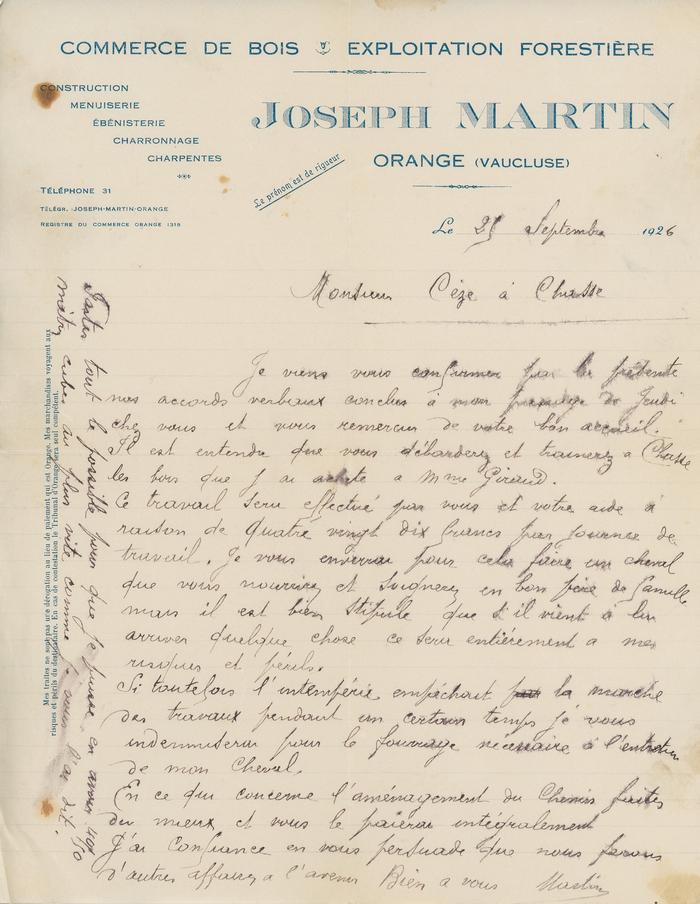 COMMERCE DE BOIS EXPLOITATION FORESTIÈRE
CONSTRUCTION
MENUISERIE
ÉBÉNISTERIE
CHARRONNAGE
CHARPENTES
JOSEPH MARTIN
ORANGE (VAUCLUSE)
TÉLÉPHONE 31
TÉLÉGR. JOSEPH-MARTIN-ORANGE
REGISTRE DU COMMERCE ORANGE 1318
Le prénom est de rigueur
Le 25 Septembre 1926
Monsieur Cèze à Chusse
Je viens vous confirmer par la présente
nos accords verbaux conclus à mon passage de Jeudi
chez vous et vous remercier de votre bon accueil.
Il est entendu que vous débarderez et trainerez a Chusse
les bois que J ai acheté a Mme Giraud.
Ce travail sera effectué par vous et votre aide à
raison de quatre vingt dix francs par Journée de
travail. Je vous enverrai pour cela faire un cheval
que vous nourrirez et soignerez en bon père de famille
mais il est bien stipulé que s'il vient à lui
arriver quelque chose ce sera entièrement a mes
risques et périls.
Si toutefois l'intempérie empêchait la marche
des travaux pendant un certain temps Je vous
indemniserai pour le fourrage nécessaire à l'entretien
de mon Cheval.
En ce qui concerne l'aménagement du Chemin faites
du mieux et vous le paierai intégralement
J'ai confiance en vous persuadé que nous ferons
d'autres affaires a l'avenir Bien a vous Martin
Faites tout le possible pour que Je puisse en avoir 40 à 50
mètres cubes au plus vite comme Je vous l'ai dit.
Mes traites ne sont pas une dérogation au lieu de paiement qui est Orange. Mes marchandises voyagent aux
risques et périls du destinataire. En cas de contestation le Tribunal d'Orange sera seul compétent.